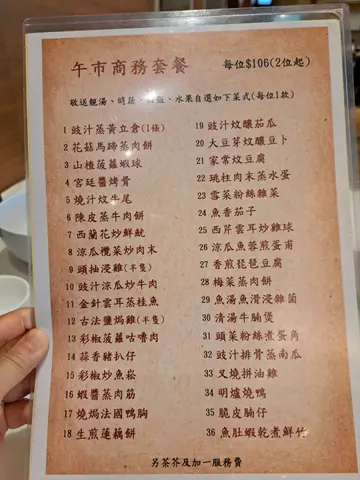 午市商務套餐
每位$106(2位起)
敬送靚湯、時蔬、絲苗、水果自選如下菜式(每位1款)
1 豉汁蒸黃立倉(1條)
2 花菇馬蹄蒸肉餅
3 山楂菠蘿蝦球
4 宮廷醬烤骨
5 燒汁炆牛尾
6 陳皮蒸牛肉餅
7 西蘭花炒鮮魷
8 涼瓜欖菜炒肉末
9 頭抽浸雞(半隻)
10 豉汁涼瓜炒牛肉
11 金針雲耳蒸桂魚
12 古法鹽焗雞(半隻)
13 彩椒菠蘿咕嚕肉
14 蒜香豬扒仔
15 彩椒炒魚崧
16 蝦醬蒸肉筋
17 燒焗法國鴨胸
18 生煎蓮藕餅
19 豉汁炆釀茄瓜
20 大豆芽炆釀豆卜
21 家常炆豆腐
22 瑤柱肉末蒸水蛋
23 雪菜粉絲雜菜
24 魚香茄子
25 西芹雲耳炒雞球
26 涼瓜魚蓉煎蛋甫
27 香煎琵琶豆腐
28 梅菜蒸肉餅
29 魚湯魚滑浸雜菌
30 清湯牛腩煲
31 頭菜粉絲煮蛋角
32 豉汁排骨蒸南瓜
33 叉燒拼油雞
34 明爐燒鴨
35 脆皮腩仔
36 魚肚蝦乾煮鮮竹
另茶芥及加一服務費